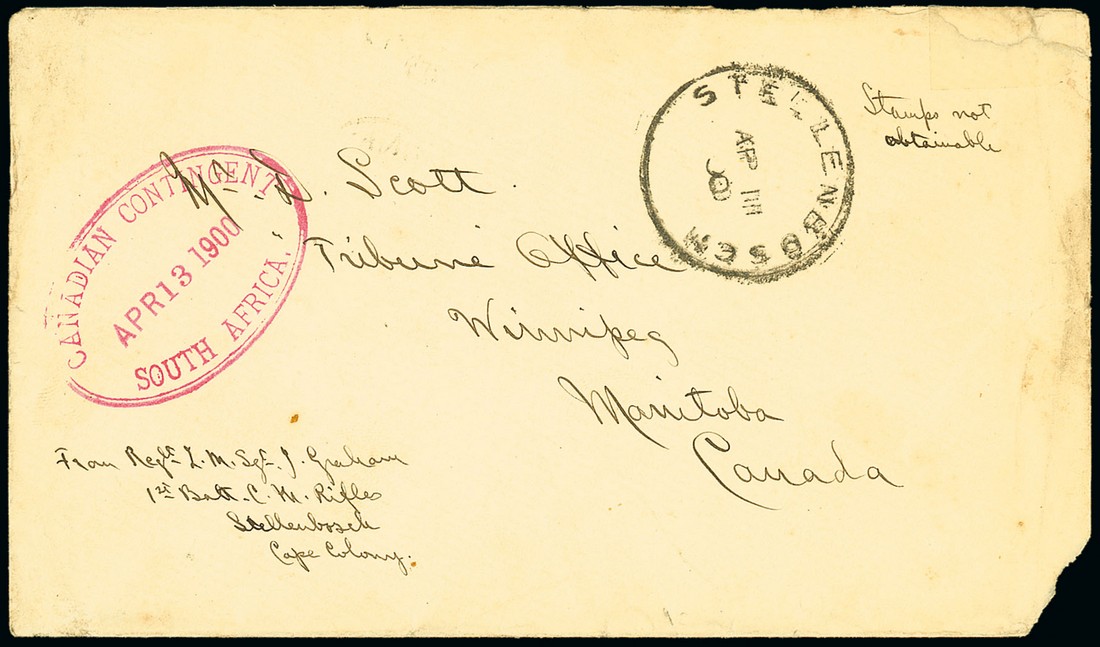 Stamps not
obtainable
STELLENBOSCH
AP
00
CANADIAN CONTINGENT
APR 13 1900
SOUTH AFRICA.
Mr. D. Scott.
"Tribune Office
Winnipeg
Manitoba
Canada
From Regtl. Q. M. Sgt. J. Graham
1st Batt. C. M. Rifles
Stellenbosch
Cape Colony.